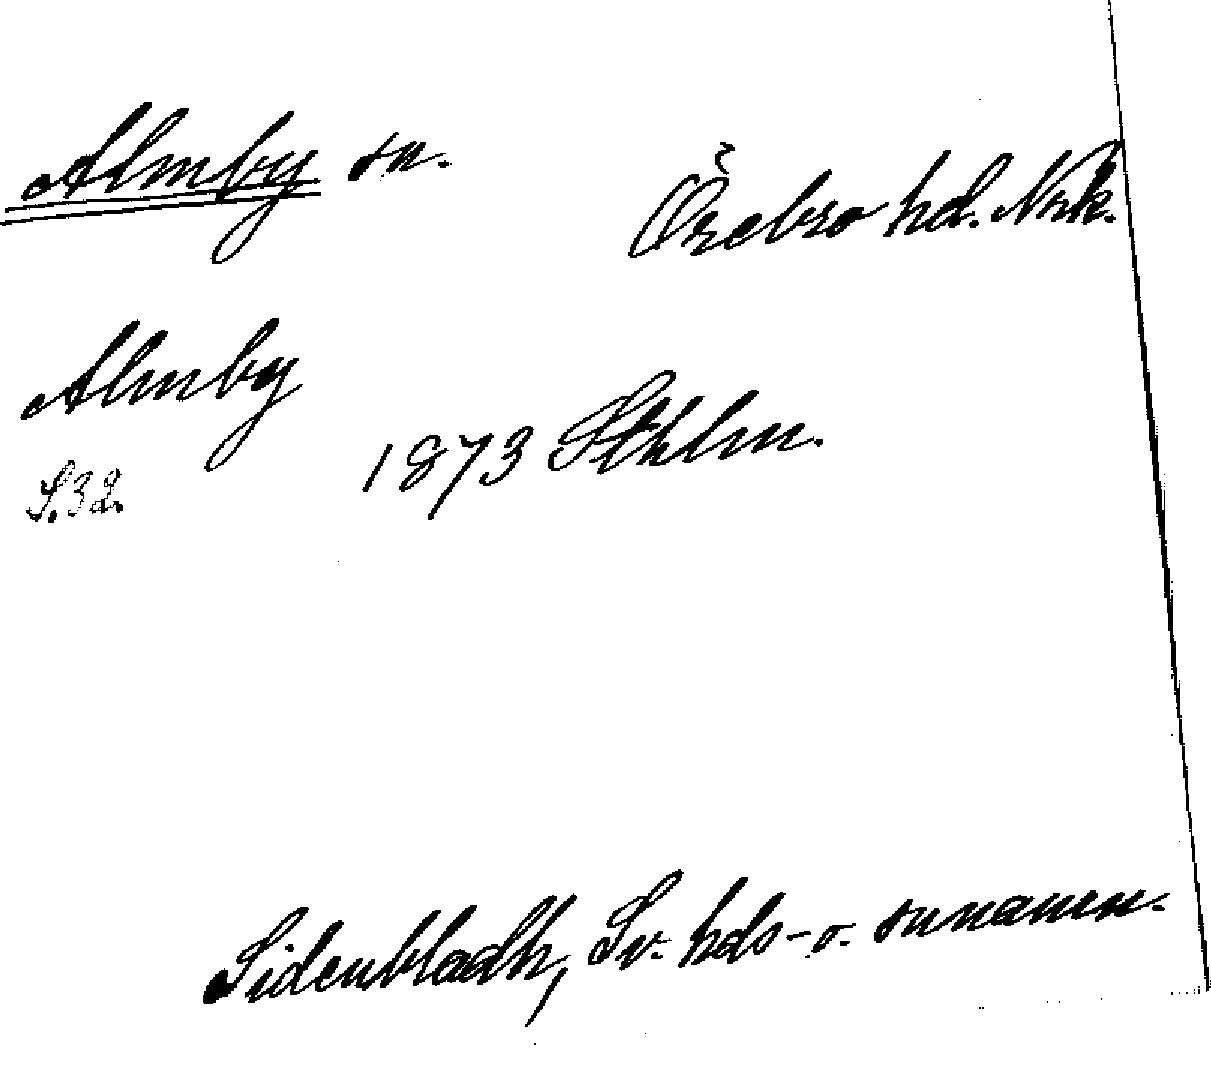 Almby sn. Örebro hd. Nrk.
Almby
1873 Sthlm.
S. 32.
Sidenbladh, Sv. hds- o. snnamn.